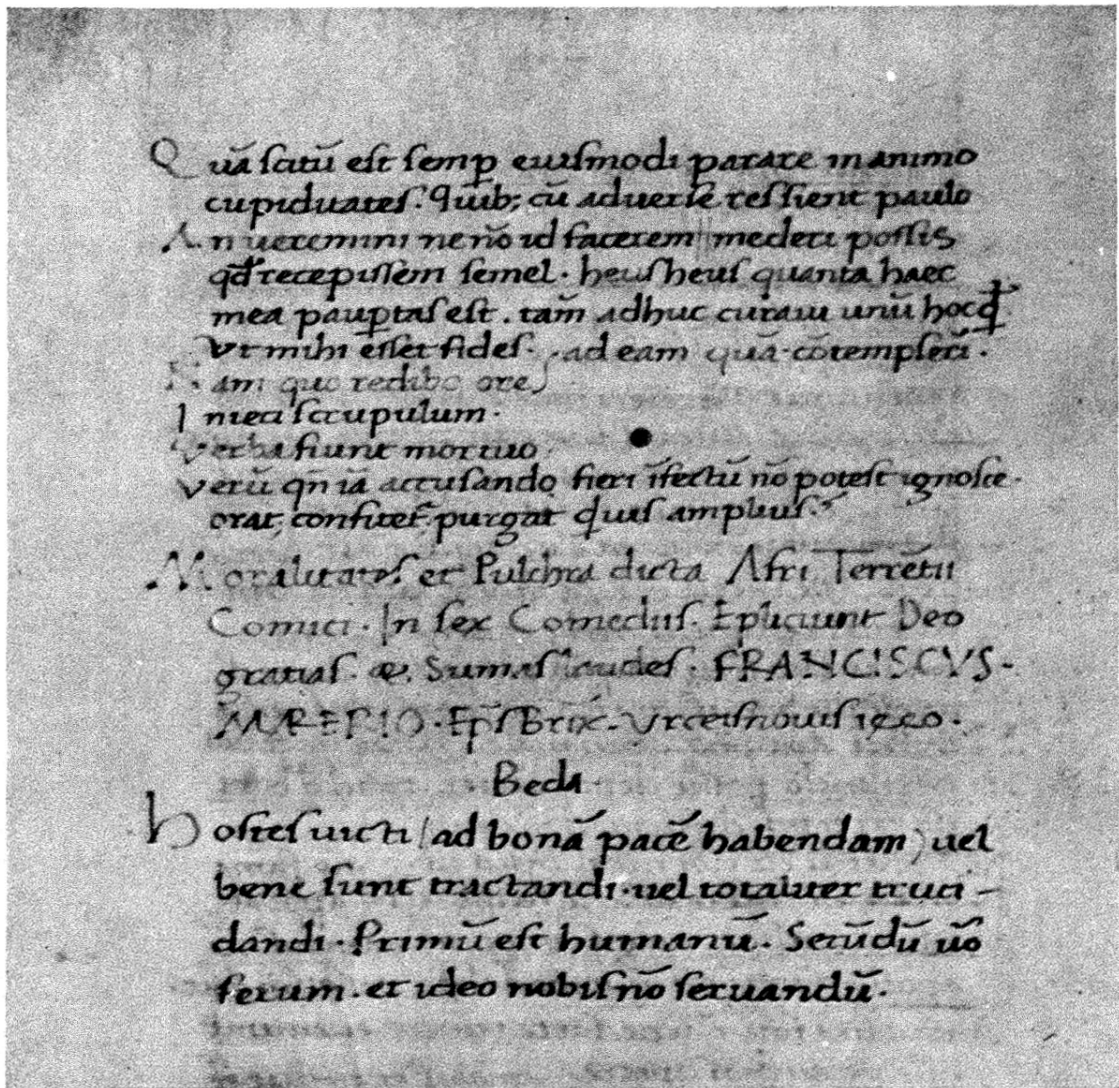 Quā scitū est semꝑ eiusmodi parare in animo
cupiditates. quib; cū aduerse res sient paulo
An ueremini ne nō id facerem || mederi possis
qđ recepissem semel. heus heus quanta haec
mea pauꝑtas est. tam̄ adhuc curaui unū hoc
Vt mihi esset fides. ad eam quā cōtempleri.
Nam quo redibo ore
Inieci scrupulum.
Verba fiunt mortuo.
Verū qn̄ iā accusando fieri īfectū nō potest ignosce.
orat, confitet̄. purgat quis amplius.
Moralitates et Pulchra dicta Afri Terrētii
Comici. In sex Comediis. Expliciunt Deo
gratias. & Sumas laudes. FRANCISCVS.
MARERIO. Ep̄s Brix. Vrceis nouis
Beda.
Hostes uicti / ad bonā pacē habendam) uel
bene sunt tractandi. uel totaliter truci-
dandi. Primū est humanū. Secūdū uō
ferum. et ideo nobis nō seruandū.